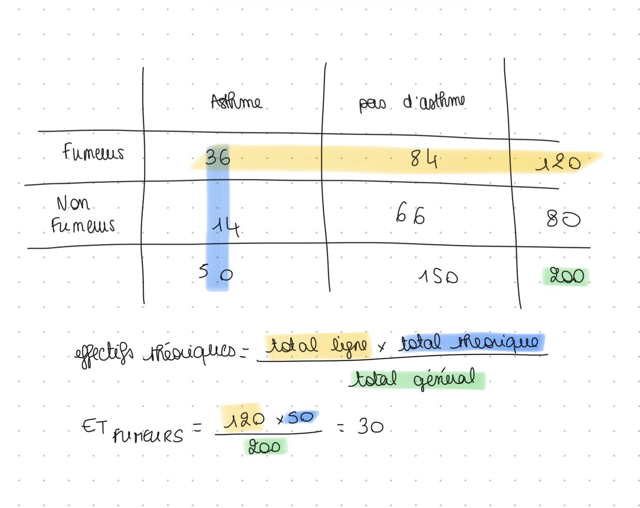 Asthme pas d'asthme
Fumeurs 36 84 120
Non
Fumeurs 14 66 80
50 150 200
effectifs théoriques = total ligne x total theorique
total général
ET FUMEURS = 120 x 50 = 30
200